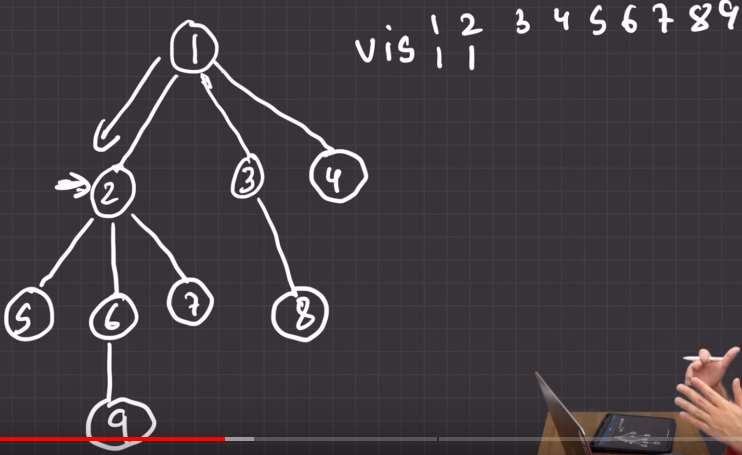 1 2 3 4 5 6 7 8 9
vis 1 1
1
2 3 4
5 6 7 8
9